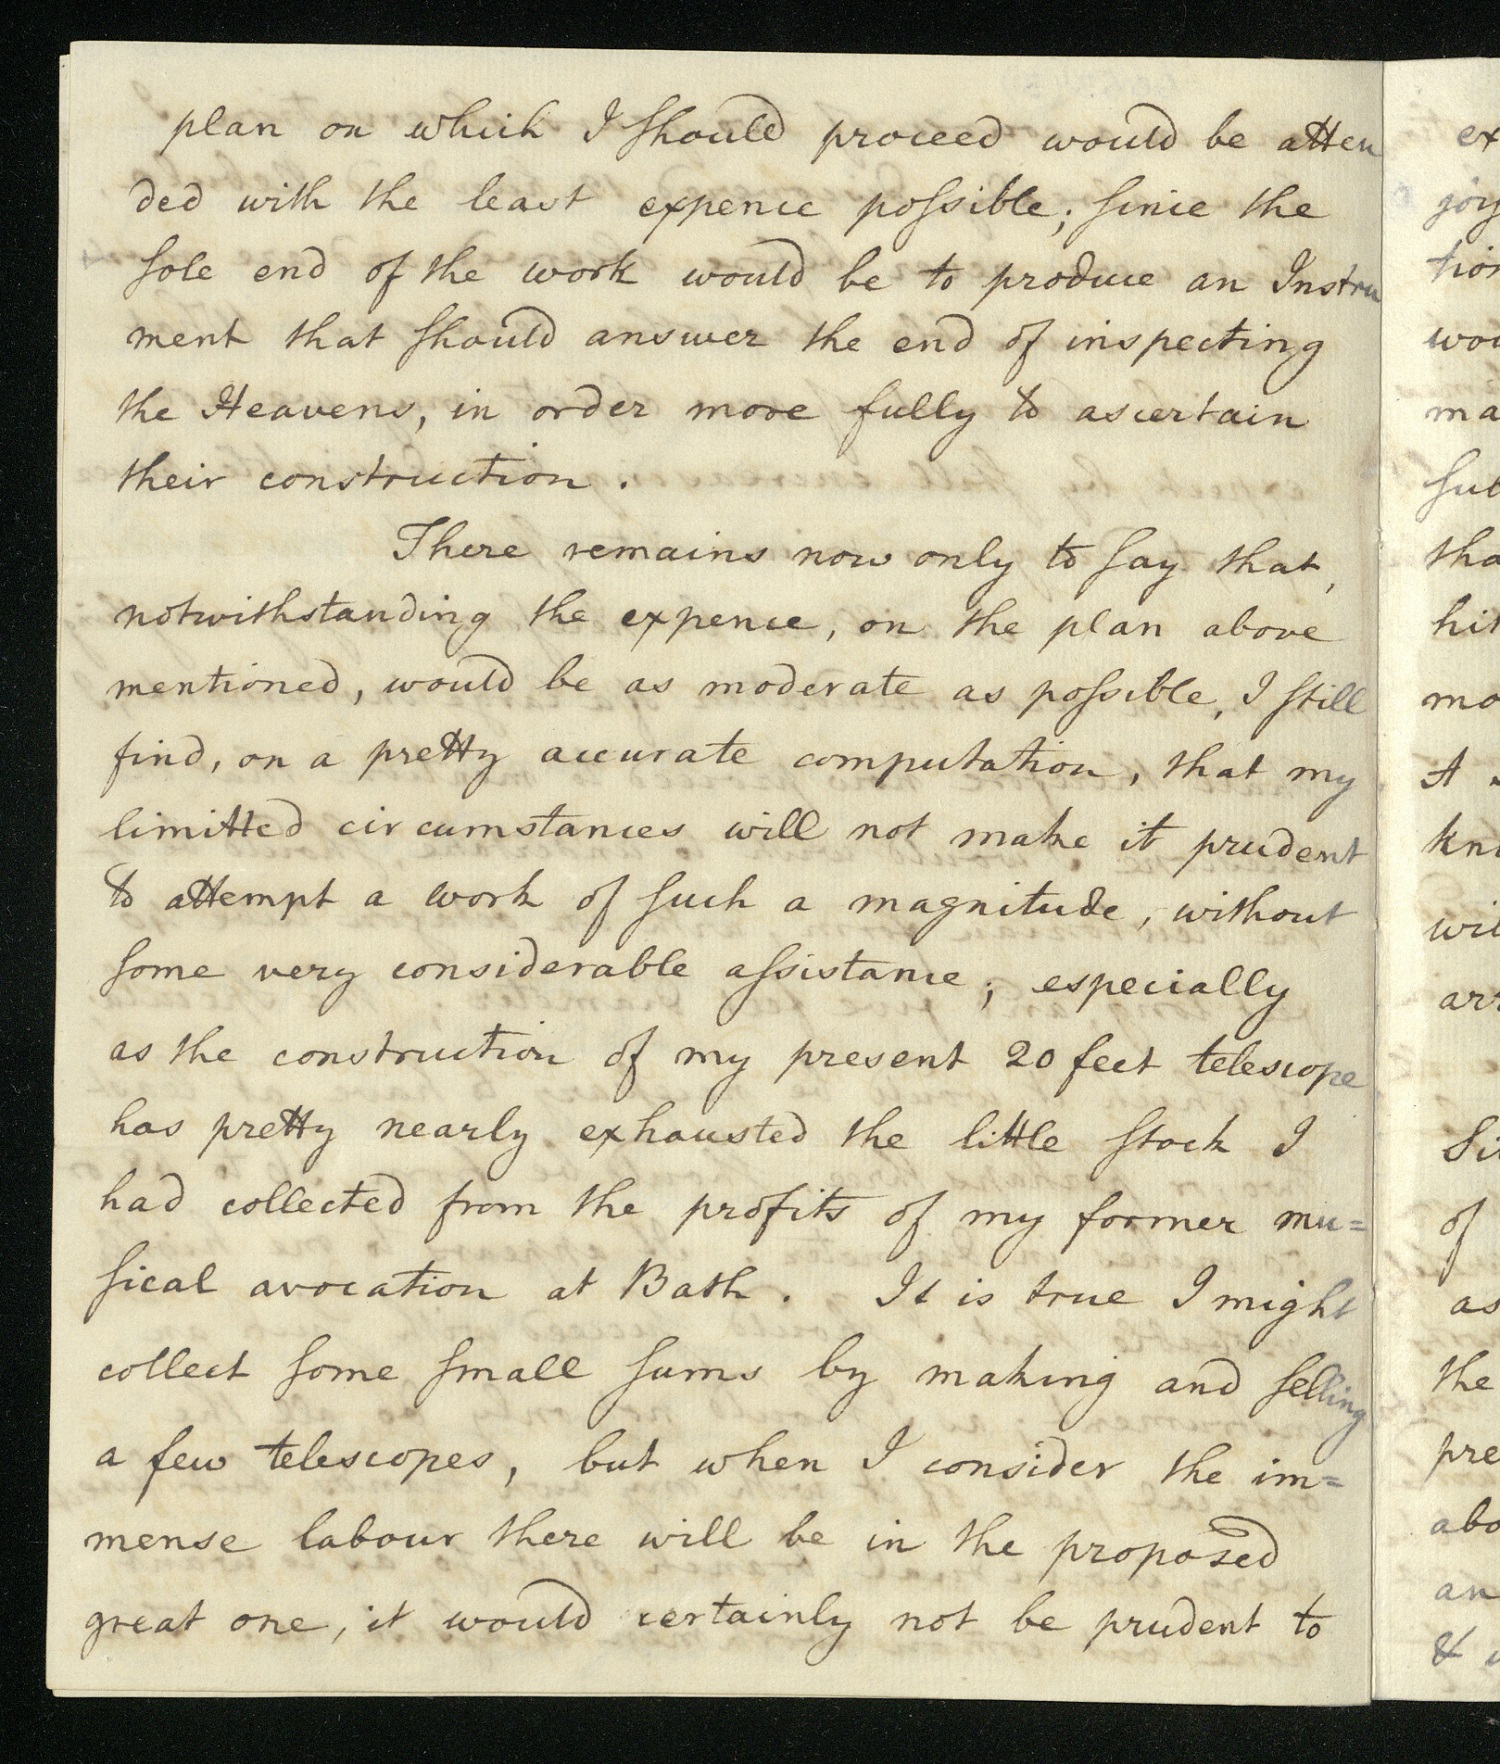 plan on which I should proceed would be atten
ded with the least expence possible; since the
sole end of the work would be to produce an Instru
ment that should answer the end of inspecting
the Heavens, in order more fully to ascertain
their construction.
There remains now only to say that,
notwithstanding the expence, on the plan above
mentioned, would be as moderate as possible, I still
find, on a pretty accurate computation, that my
limitted circumstances will not make it prudent
to attempt a work of such a magnitude, without
some very considerable assistance; especially
as the construction of my present 20 feet telescope
has pretty nearly exhausted the little stock I
had collected from the profits of my former mu=
sical avocation at Bath. It is true I might
collect some small sums by making and selling
a few telescopes, but when I consider the im=
mense labour there will be in the proposed
great one, it would certainly not be prudent to
ex
joy
tion
wou
ma
sub
tha
hit
mo
A
kno
wil
arr
Si
of
as
the
pre
abo
an
&